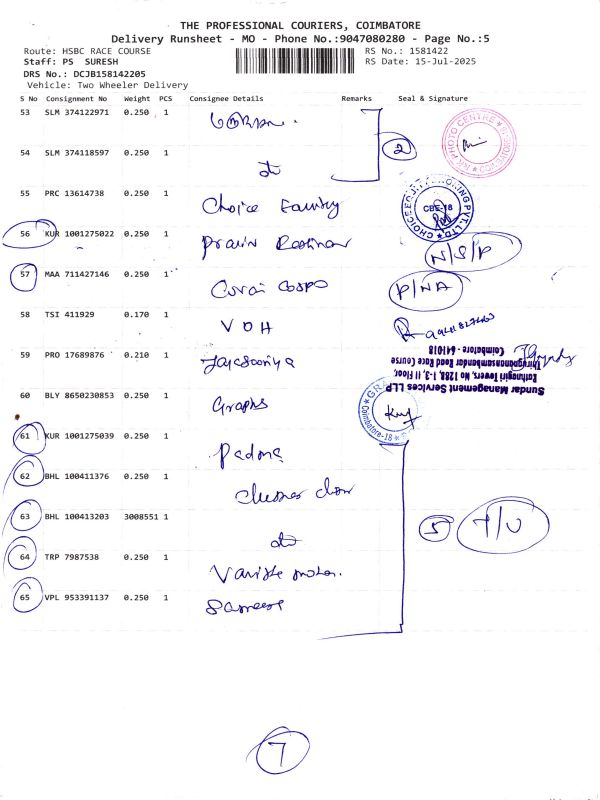 THE PROFESSIONAL COURIERS, COIMBATORE
Delivery Runsheet - MO - Phone No.:9047080280 - Page No.:5
Route: HSBC RACE COURSE RS No.: 1581422
Staff: PS SURESH RS Date: 15-Jul-2025
DRS No.: DCJB158142205
Vehicle: Two Wheeler Delivery
S No Consignment No Weight PCS Consignee Details Remarks Seal & Signature
53 SLM 374122971 0.250 1
INK PHOTO CENTRE
COIMBATORE
54 SLM 374118597 0.250 1 2
55 PRC 13614738 0.250 1 Choice
CBE-18
56 KUR 1001275022 0.250 1 Pravin N/S/P
57 MAA 711427146 0.250 1 P/NA
58 TSI 411929 0.170 1 VOH
59 PRO 17689876 0.210 1
Sundar Management Services LLP
Rathnagiri Towers, No 1288, 1-3, II Floor,
Thirugnanasambandam Road Race Course
Coimbatore - 641018
60 BLY 8650230853 0.250 1 Graphs
Coimbatore-18
61 KUR 1001275039 0.250 1 Padma
62 BHL 100411376 0.250 1
63 BHL 100413203 3008551 1 5 T/U
64 TRP 7987538 0.250 1
65 VPL 953391137 0.250 1
7